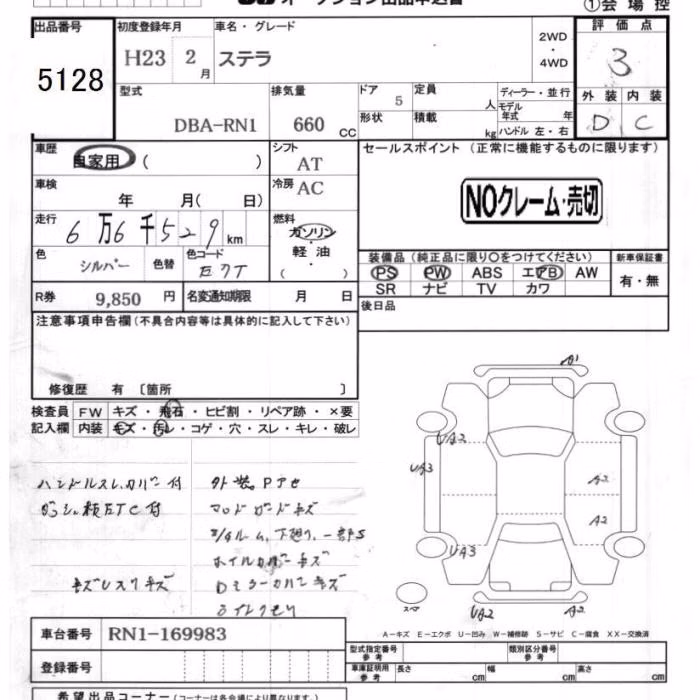 オークション出品申込書
①会場控
出品番号
5128
初度登録年月
H23 2月
車名・グレード
ステラ
2WD
・
4WD
評価点
3
外装 内装
D C
型式
DBA-RN1
排気量
660 CC
ドア
5
形状
定員
人
積載
kg
ディーラー・並行
モデル年式 年
ハンドル 左・右
車歴
自家用 ( )
シフト
AT
車検
年 月( 日)
冷房
AC
走行
6万6千529km
燃料
ガソリン
軽油
( )
色
シルバー
色替
色コード
R券
9,850 円
名変通知期限 月 日
セールスポイント (正常に機能するものに限ります)
NOクレーム・売切
装備品 (純正品に限り〇をつけてください)
PS PW ABS エアB AW
SR ナビ TV カワ
新車保証書
有・無
後日品
注意事項申告欄 (不具合内容等は具体的に記入して下さい)
修復歴 有 〔箇所 〕
検査員
記入欄
FW キズ・飛石・ヒビ割・リペア跡・×要
内装 キズ・汚レ・コゲ・穴・スレ・キレ・破レ
ハンドルスレ、カバー付
ETC付
外装。
マッドガードキズ
下廻り、一部S
ホイルカバーキズ
DミラーカバーキズA1
UA2
UA3
A2
A2
UA3
UA2
A2
スペア
A-キズ E-エクボ U-凹み W-補修跡 S-サビ C-腐食 XX-交換済
車台番号
RN1-169983
登録番号
型式指定番号
参考
類別区分番号
参考
車庫証明用
参考
長さ cm
幅 cm
高さ cm
希望出品コーナー (コーナーは各会場により異なります。)